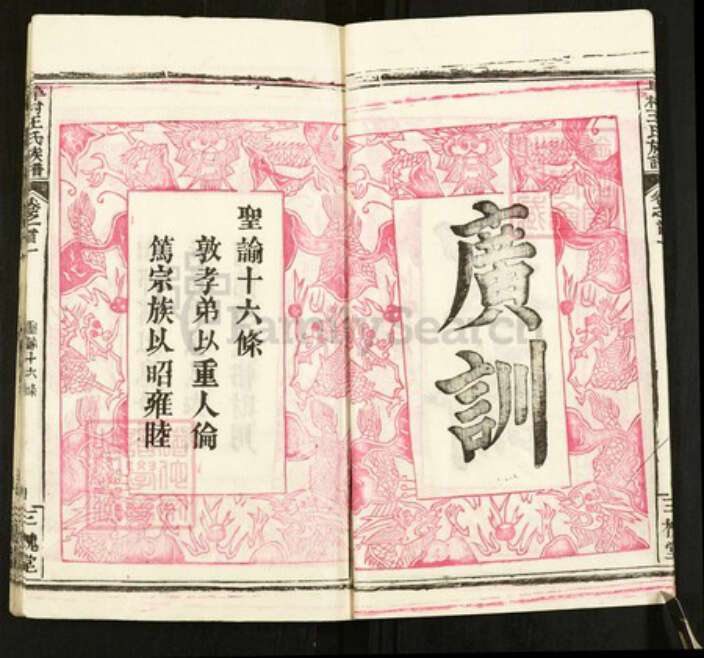 廣訓
聖諭十六條
敦孝弟以重人倫
篤宗族以昭雍睦
村王氏族譜
卷之首一
聖諭十六條
三槐堂
村王氏族譜
卷之首一
三槐堂
FamilySearch